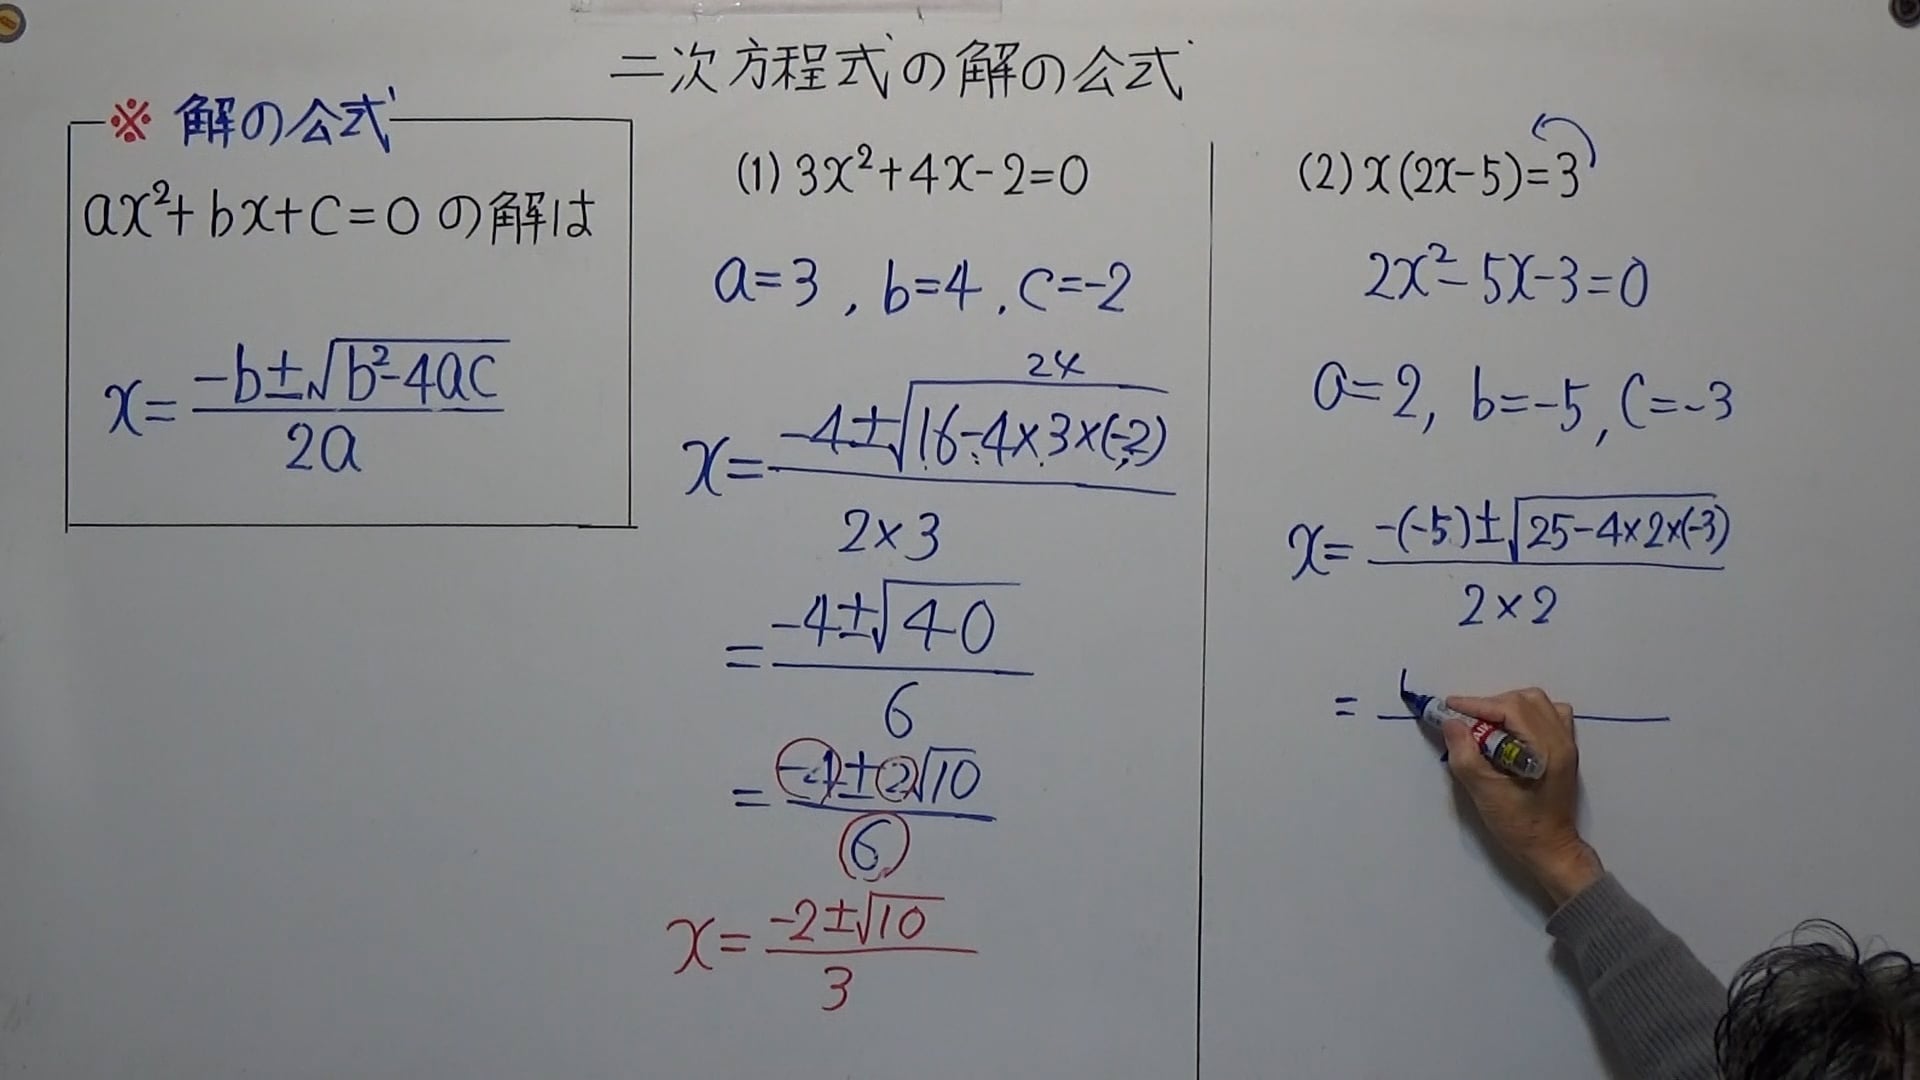 二次方程式の解の公式
※ 解の公式
ax²+bx+c=0 の解は
x=-b±√b²-4ac
2a
(1) 3x²+4x-2=0
a=3, b=4, c=-2
24
x=-4±√16-4×3×(-2)
2×3
=-4±√40
6
=-4±2√10
6
x=-2±√10
3
(2) x(2x-5)=3
2x²-5x-3=0
a=2, b=-5, c=-3
x=-(-5)±√25-4×2×(-3)
2×2
=